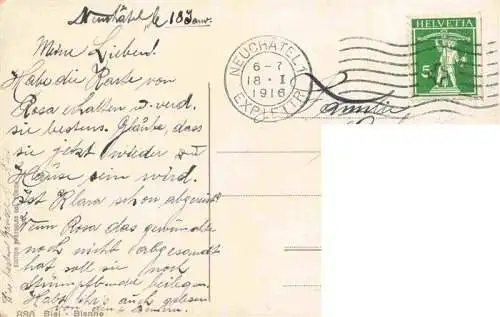 Neuchâtel 18 Januar
Meine Lieben!
Habe die Karte, von
Rosa erhalten u. verd.
sie bestens. Glaube, dass
sie jetzt wieder zu
Hause sein wird.
Ist Klara schon abgereist?
Wenn Rosa das gewünschte
noch nicht abgesandt
hat soll sie noch
Stumpfbänder beilegen.
Habt ihr's auch gelesen
von den
886 Biel - Bienne
NEUCHÂTEL 1
6-7
18. I
1916
EXP. LETTR.
HELVETIA
5
Familie